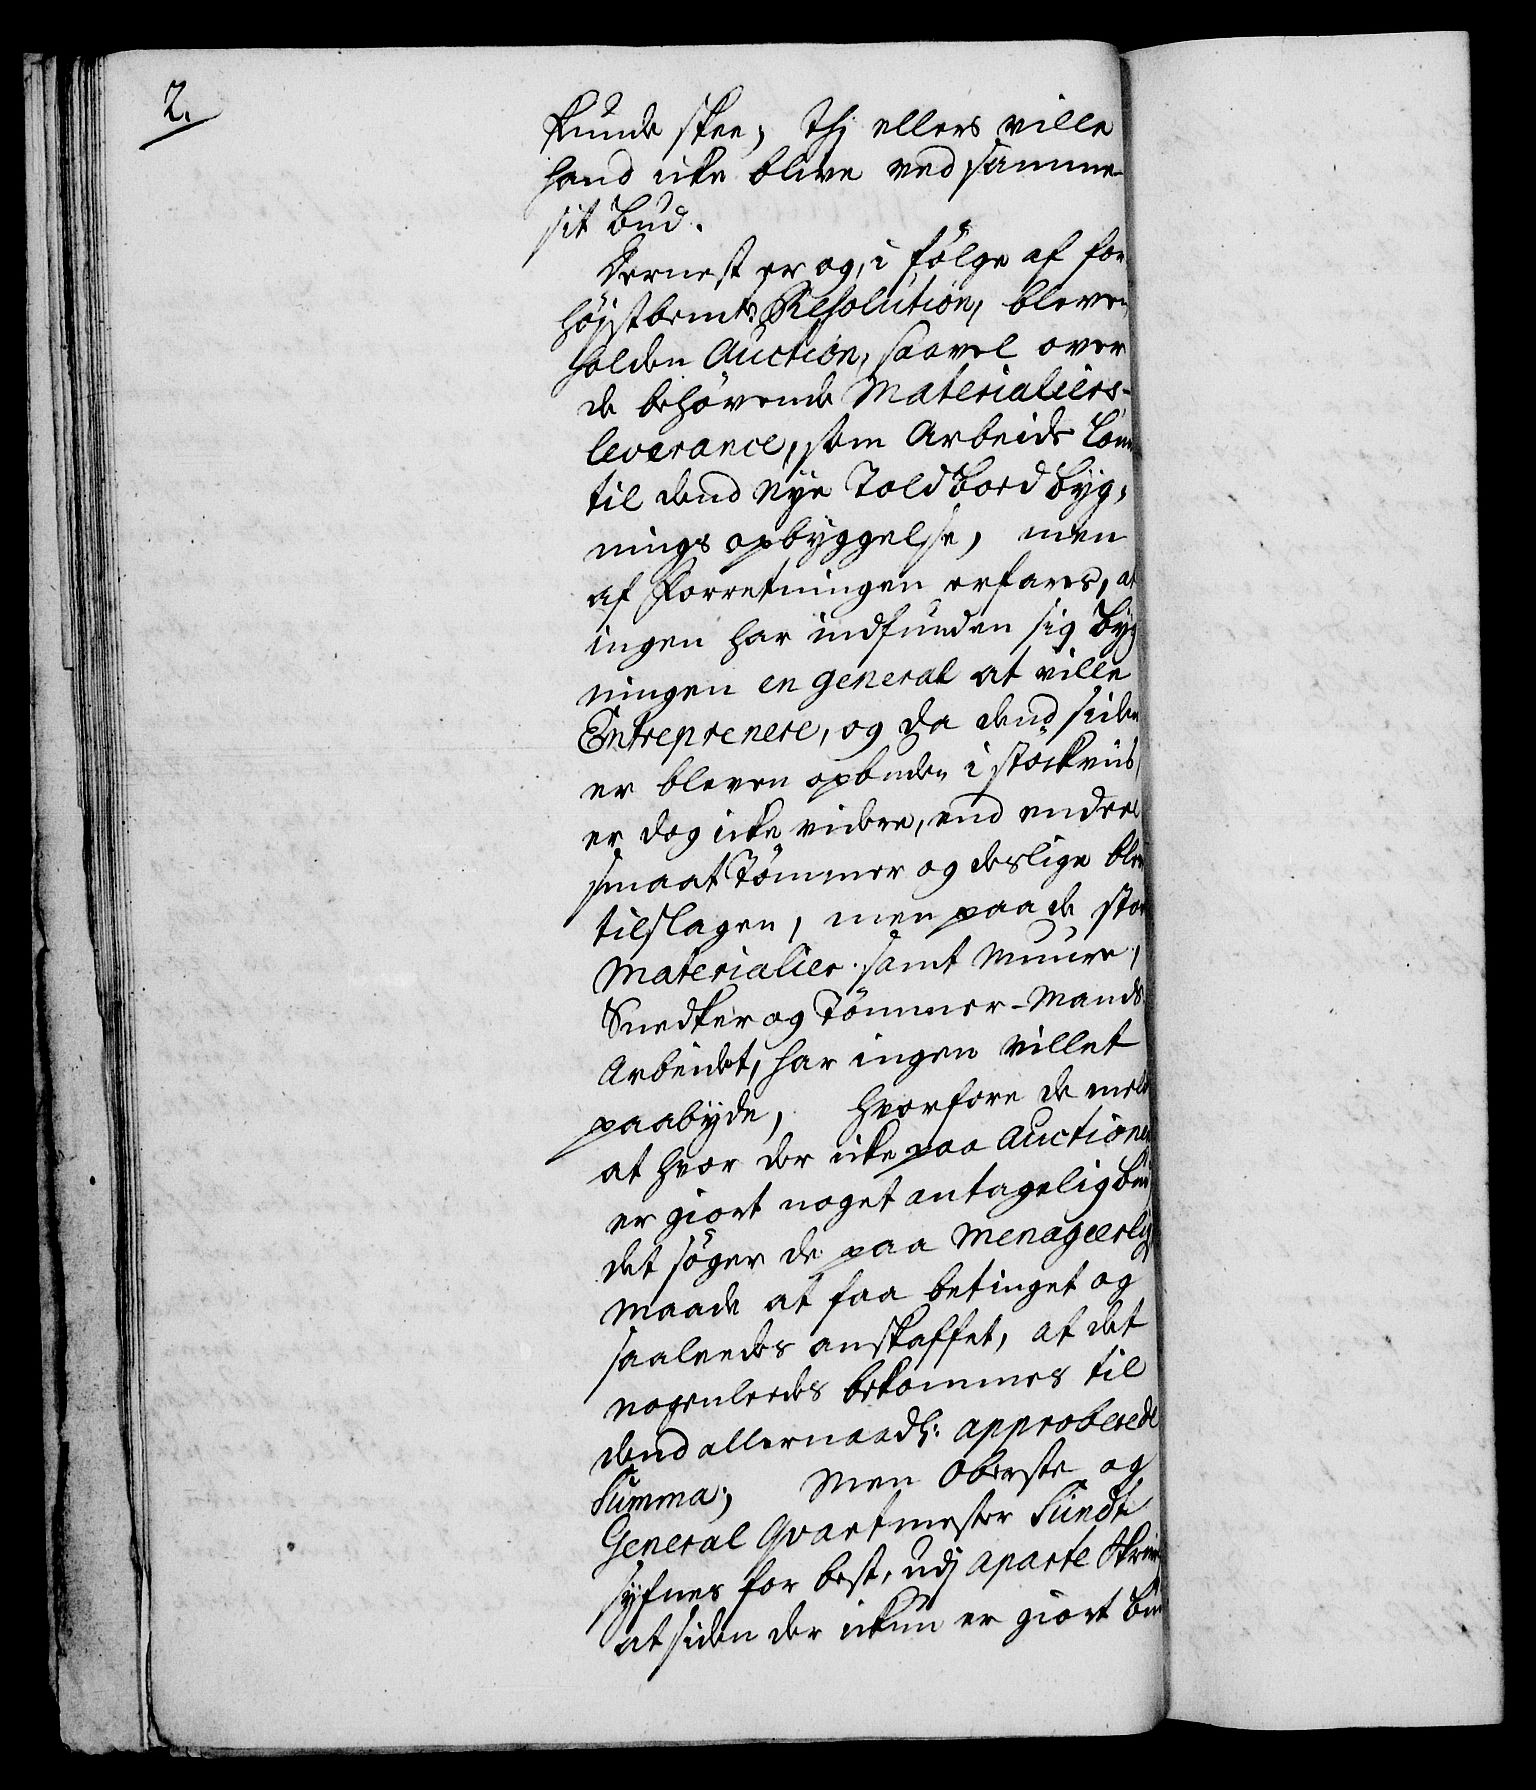 2.
kunde skee, thj ellers ville
hand icke blive ved samme
sit Bud.
Dernest er og, i følge af for
høystbemte Resolution, bleven
holden Auction, saavel over
de behøvende Materialiers
leverance, som Arbeids Løn
til dend Nye Toldbord byg,
nings opbyggelse, men
af Forretningen erfares, at
ingen har indfunden sig byg
ningen en general at ville
Entreprenere, og da dend siden
er bleven opbuden i støckviis,
er dog icke videre, end endeel
smaat Tømmer og deslige blev
tilslagen, men paa de stor
Materialier samt Muure,
Snedker og Tømmer-Mands
Arbeidet, har ingen villet
paabyde, hvorfore de meld
at hvor der icke paa Auctionen
er giort noget antagelig bud
det søger de paa menageerlig
maade at faa betinget og
saaleedes anskaffet, at det
nogenleedes bekommes til
dend allernaadl: approberede
Summa; Men Oberste og
General Qvartmester Sundt
syfnes for best, udj aparte Skriv
at siden der ickun er giort bud